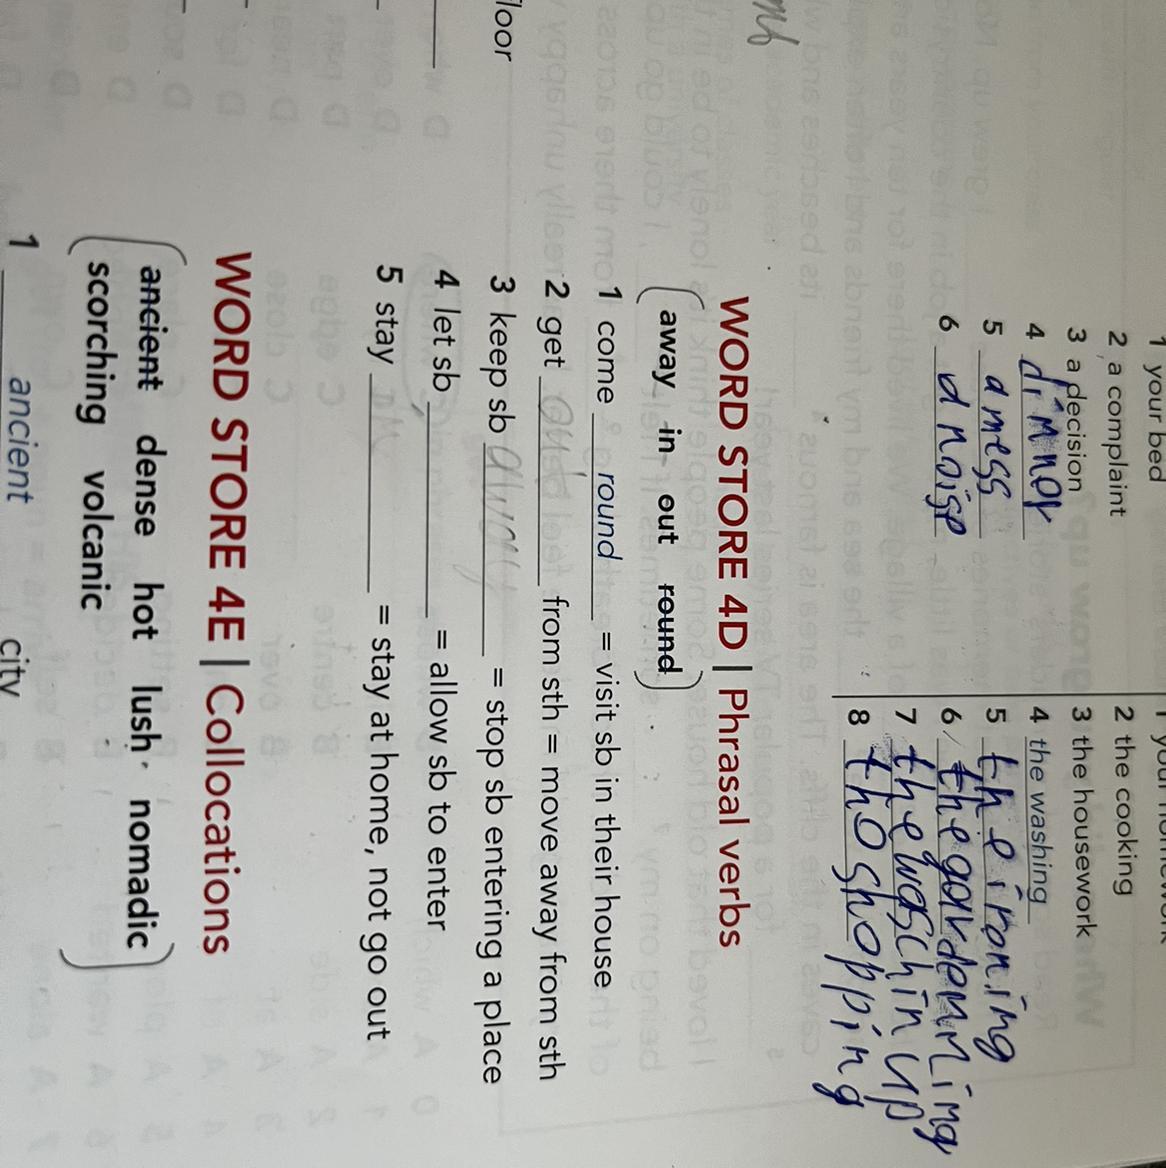 1 your bed
2 a complaint
3 a decision
4 dinnor
5 a mess
6 a noise
2 the cooking
3 the housework
4 the washing
5 the ironing
6 the gardenning
7 the waschin up
8 tho shopping
WORD STORE 4D | Phrasal verbs
away in out round
1 come round = visit sb in their house
2 get from sth = move away from sth
3 keep sb = stop sb entering a place
4 let sb = allow sb to enter
5 stay = stay at home, not go out
WORD STORE 4E | Collocations
ancient dense hot lush nomadic
scorching volcanic
1 ancient city
loor